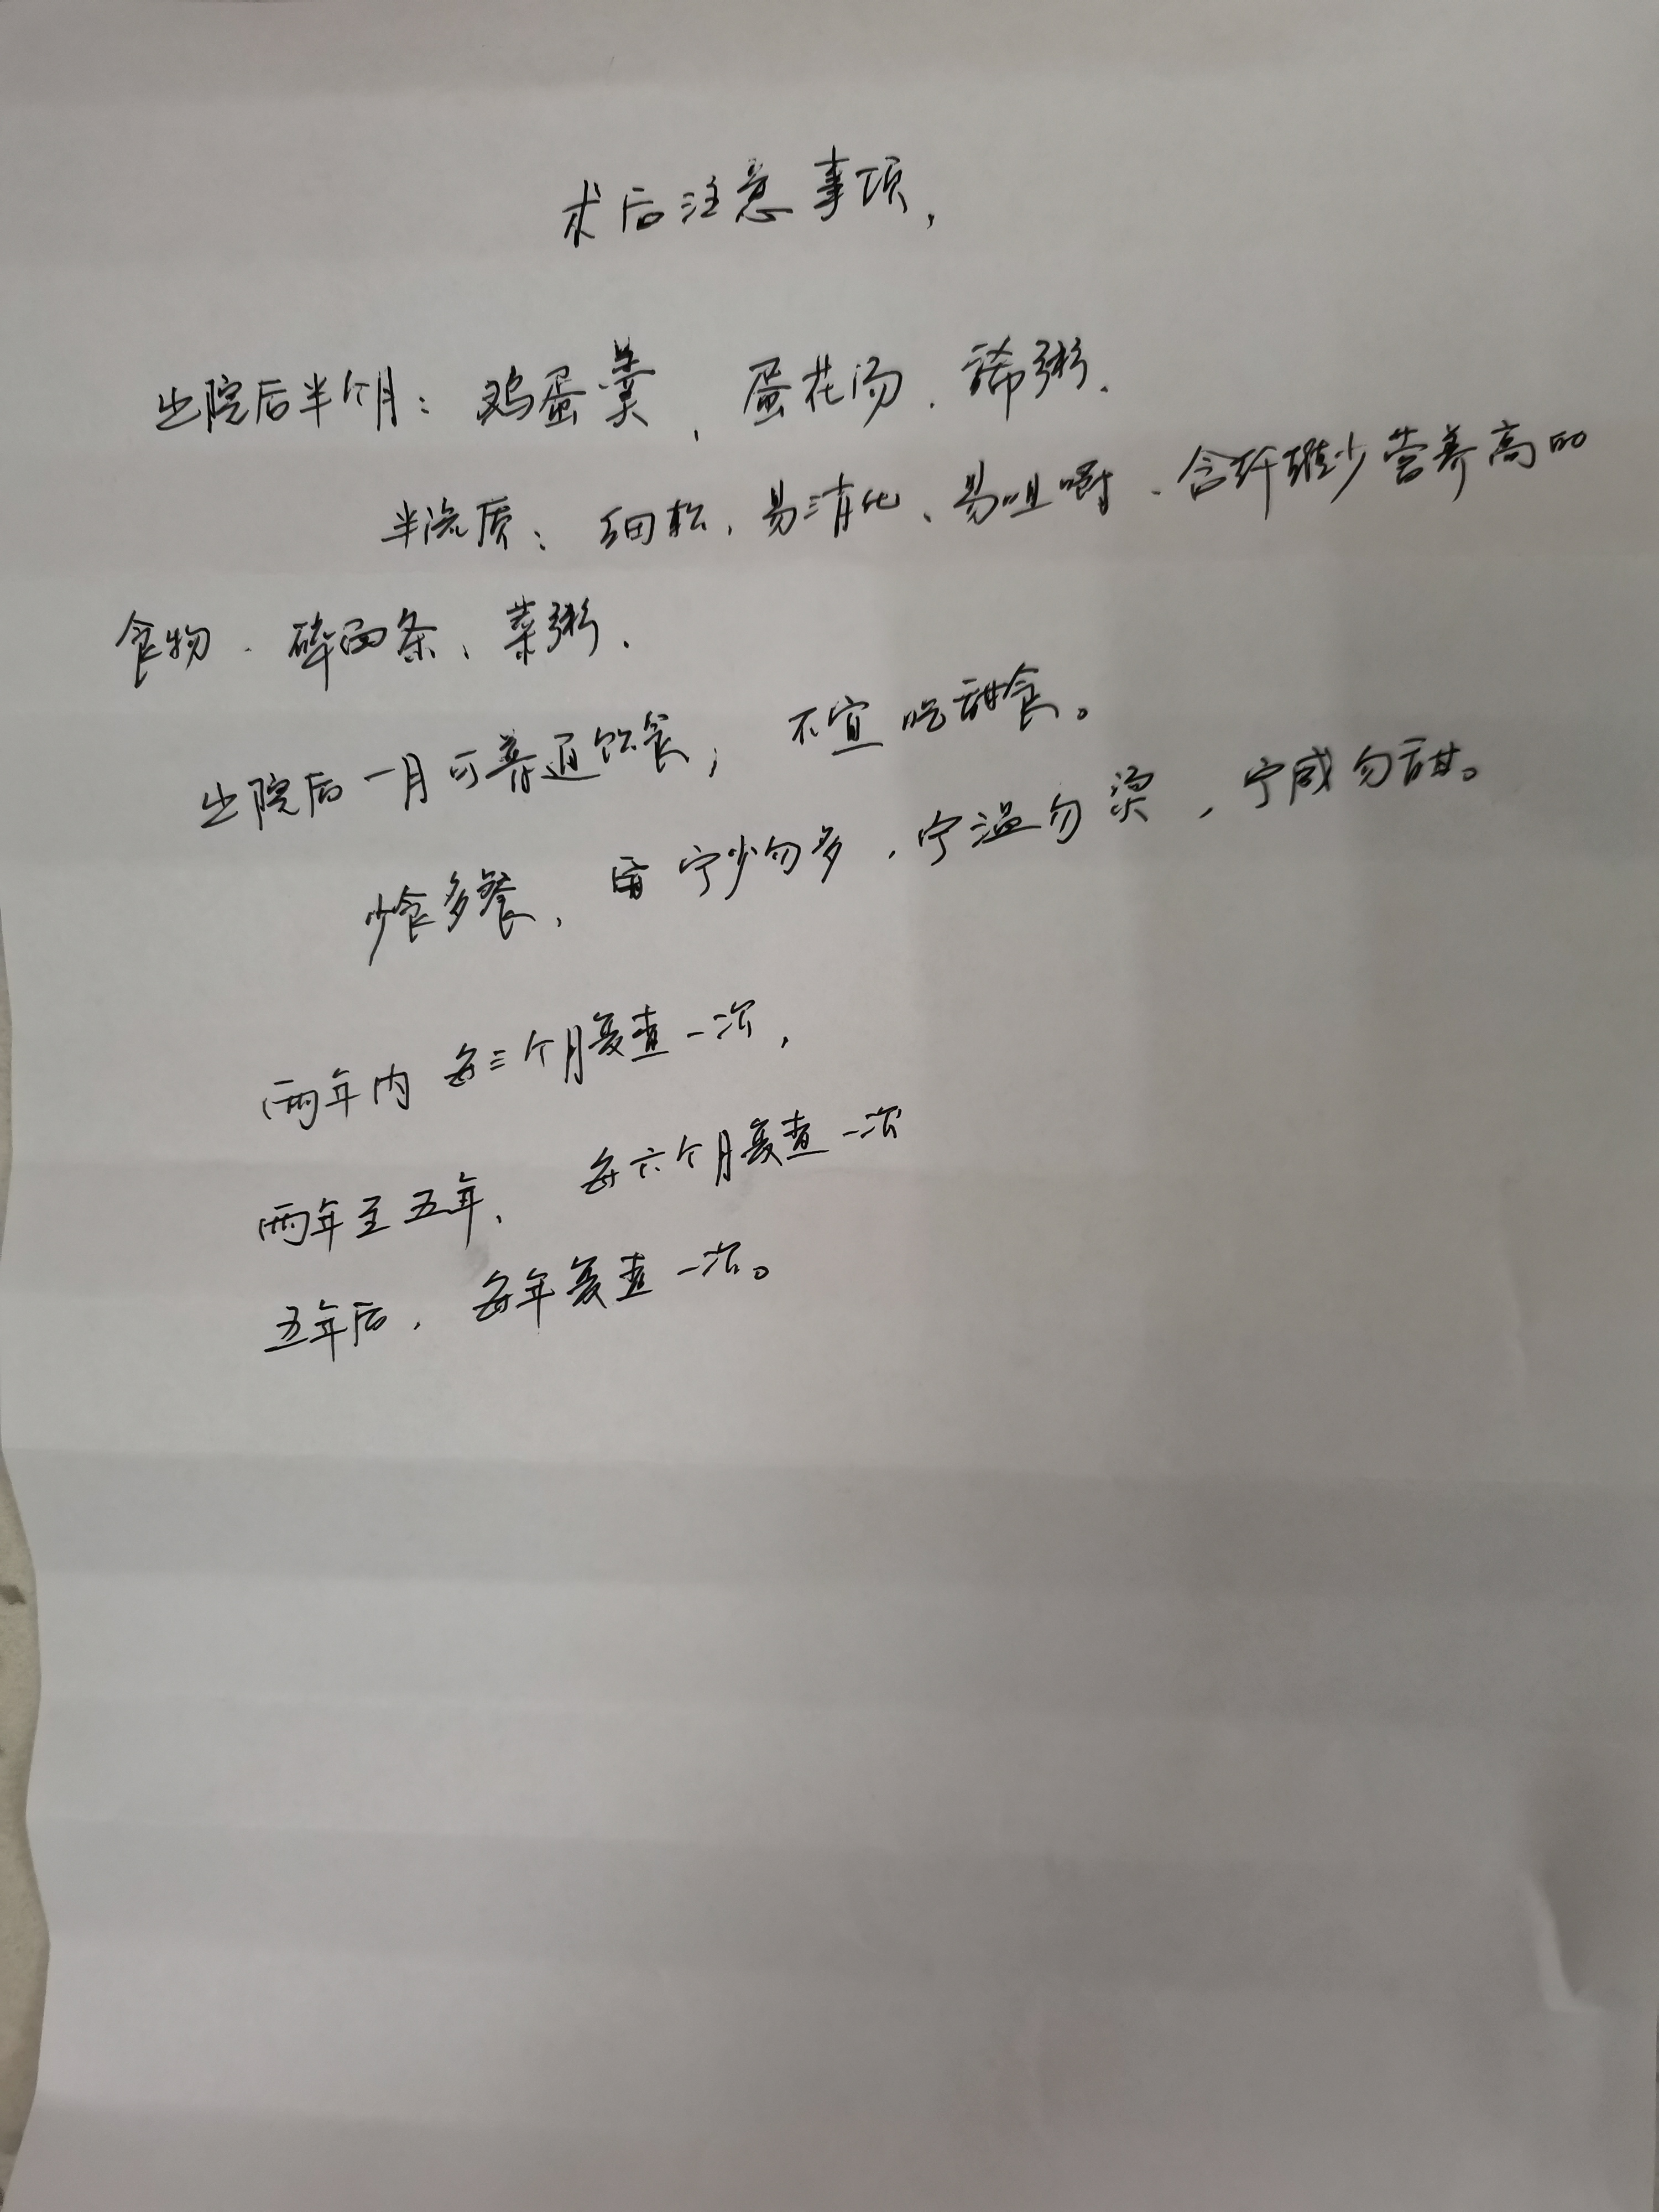 术后注意事项，
出院后半个月：鸡蛋羹、蛋花汤、稀粥、
半流质：细软、易消化、易咀嚼、含纤维少营养高的
食物、碎面条、菜粥、
出院后一月可普通饮食，不宜吃甜食。
少食多餐，宁少勿多，宁温勿烫，宁咸勿甜。
两年内 每三个月复查一次，
两年至五年，每六个月复查一次
五年后，每年复查一次。